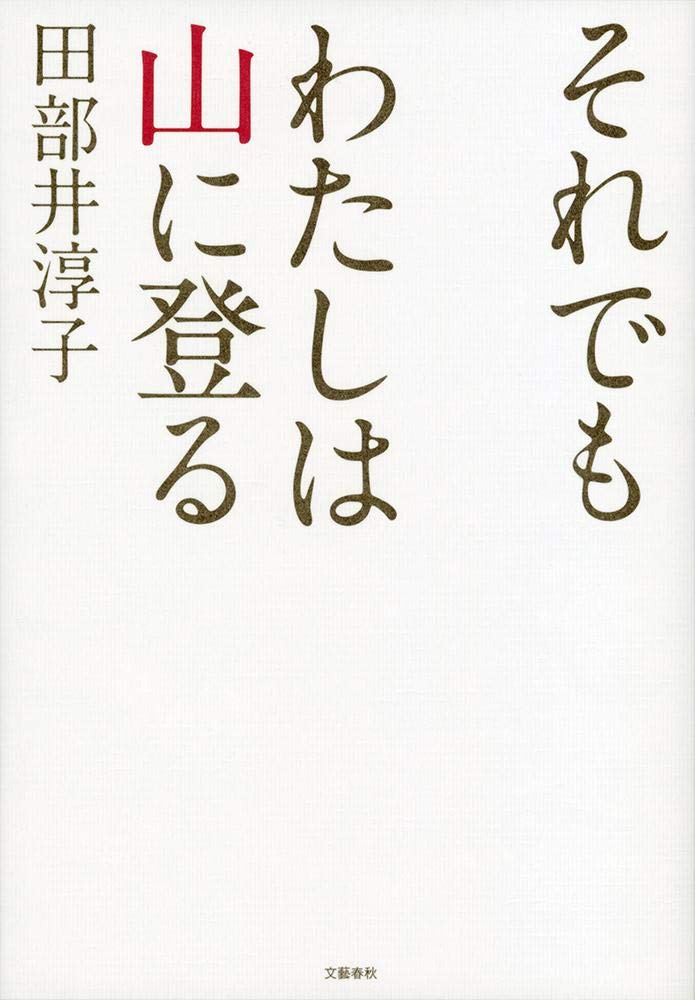 それでも
わたしは
山に登る
田部井淳子
文藝春秋